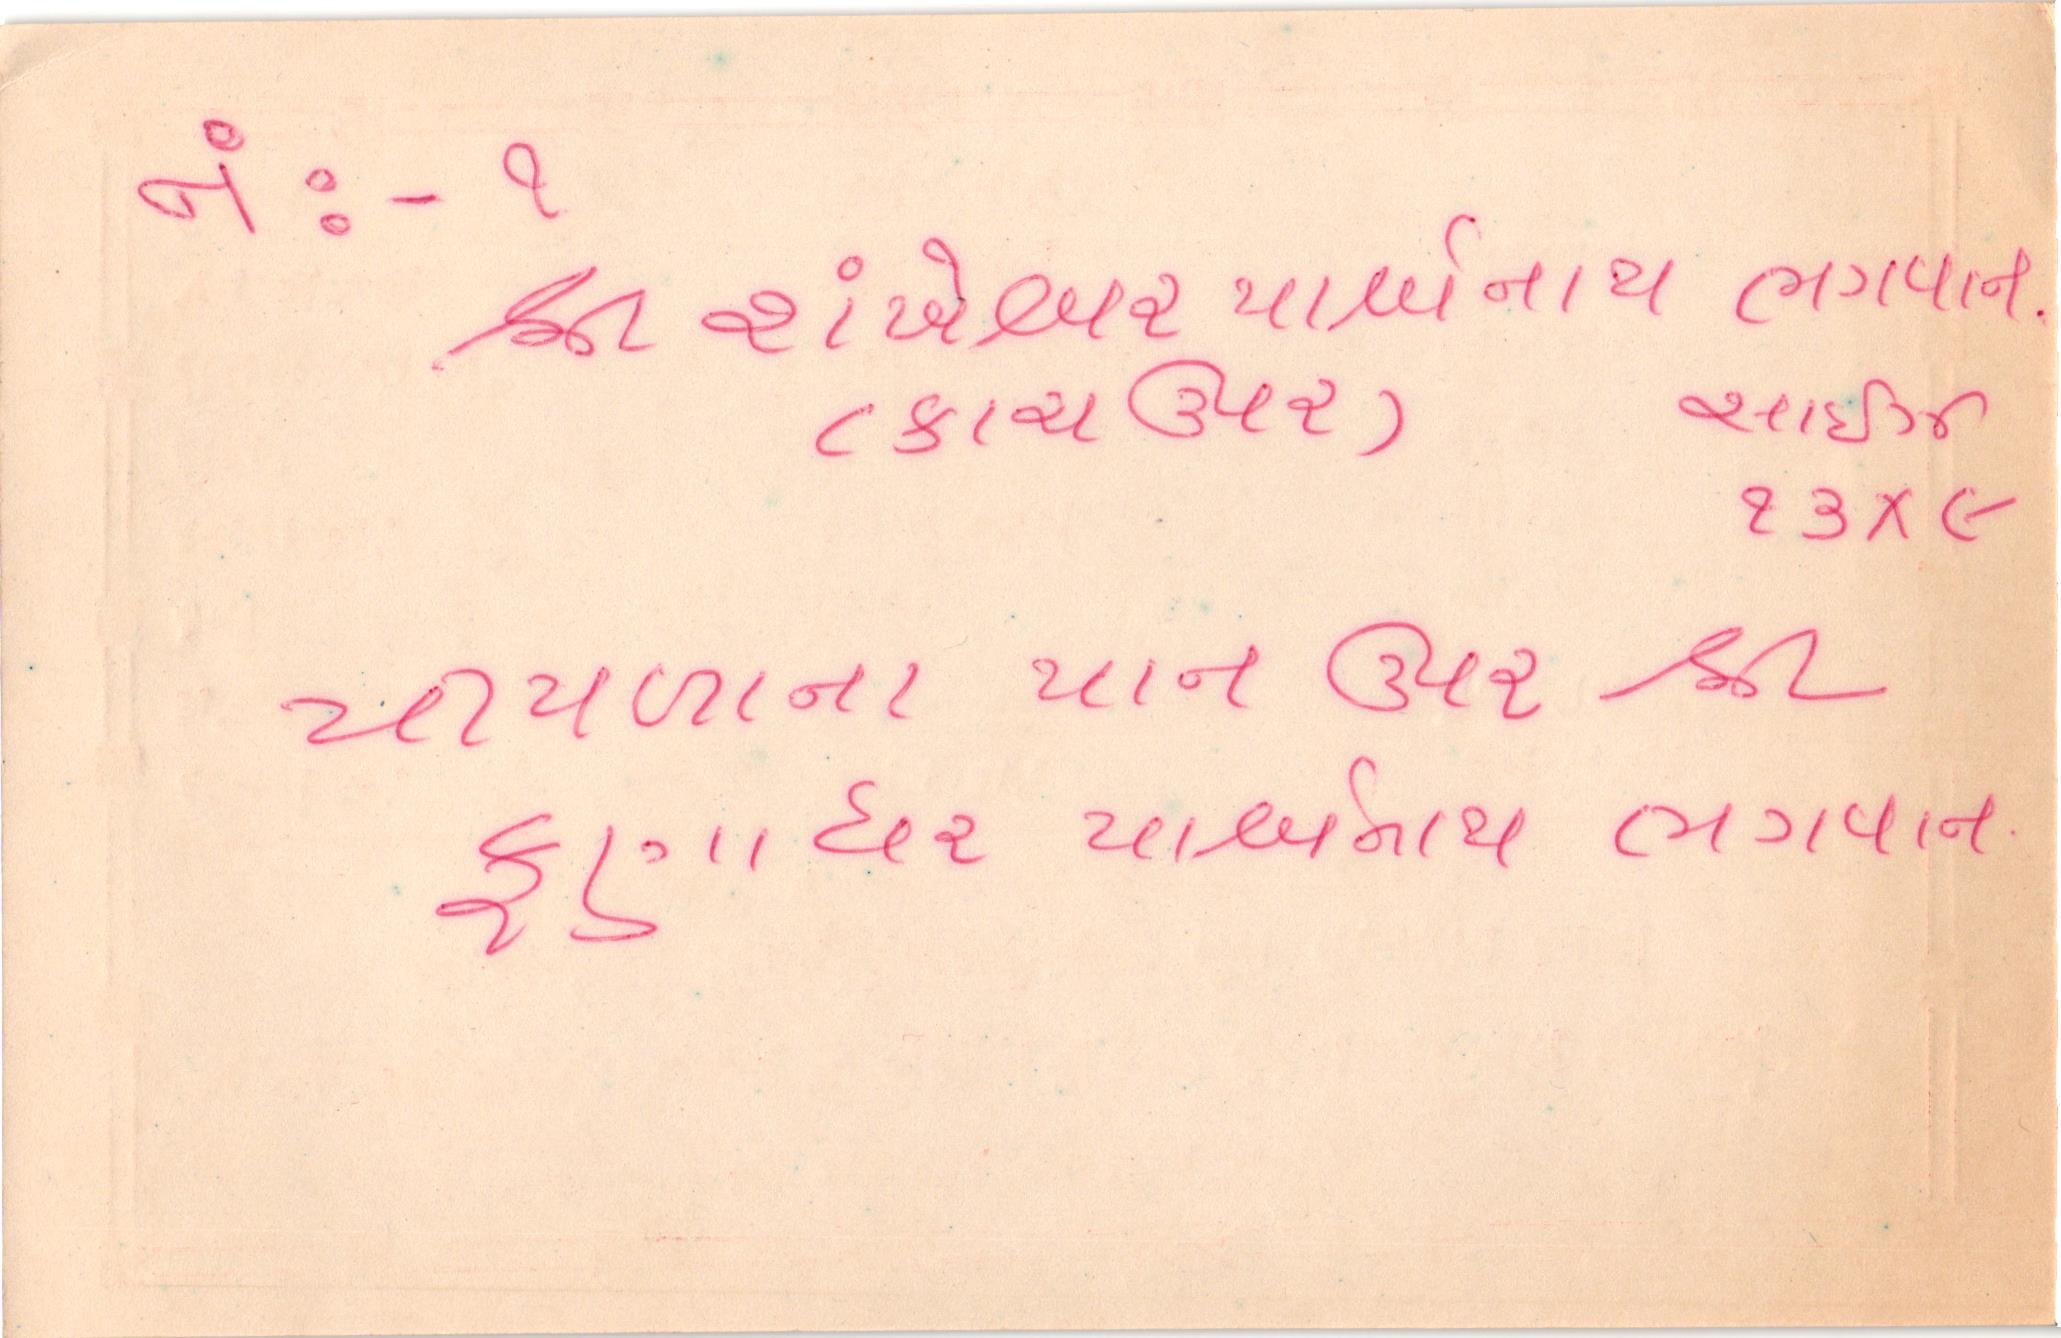 નં :- ૧
શ્રી શંખેશ્વર પાર્શ્વનાથ ભગવાન.
(કાચ ઉપર) સાઈઝ
૧૩ X ૯
પીપળાના પાન ઉપર શ્રી
ફણાધર પાર્શ્વનાથ ભગવાન.